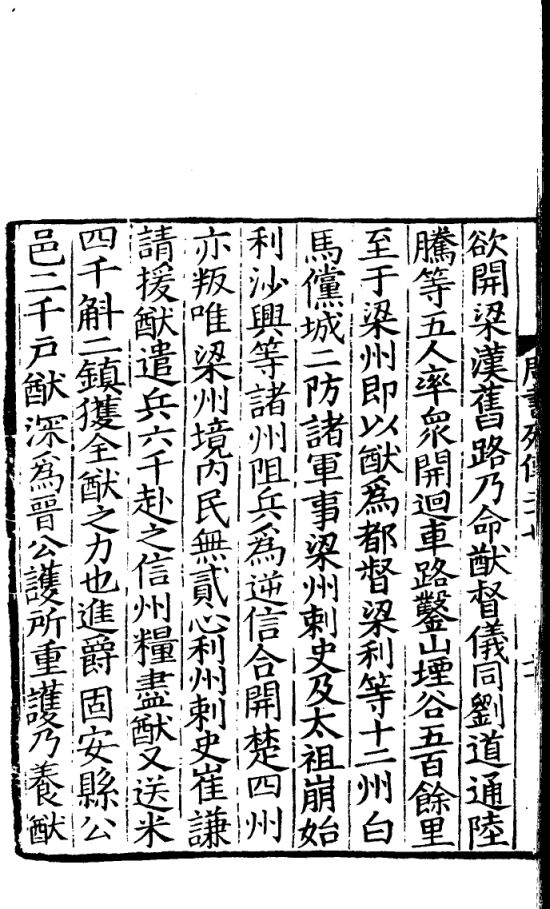 欲開梁漢舊路乃命猷督儀同劉道通陸
騰等五人率衆開迴車路鑿山堙谷五百餘里
至于梁州即以猷爲都督梁利等十二州白
馬儻城二防諸軍事梁州刺史及太祖崩始
利沙興等諸州阻兵爲逆信合開楚四州
亦叛唯梁州境内民無貳心利州刺史崔謙
請援猷遣兵六千赴之信州糧盡猷又送米
四千斛二鎮獲全猷之力也進爵固安縣公
邑二千戸猷深爲晉公護所重護乃養猷